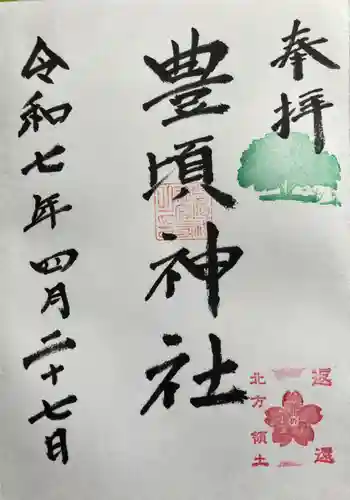 奉拝
豊頃神社
令和七年四月二十七日
北方領土
返還